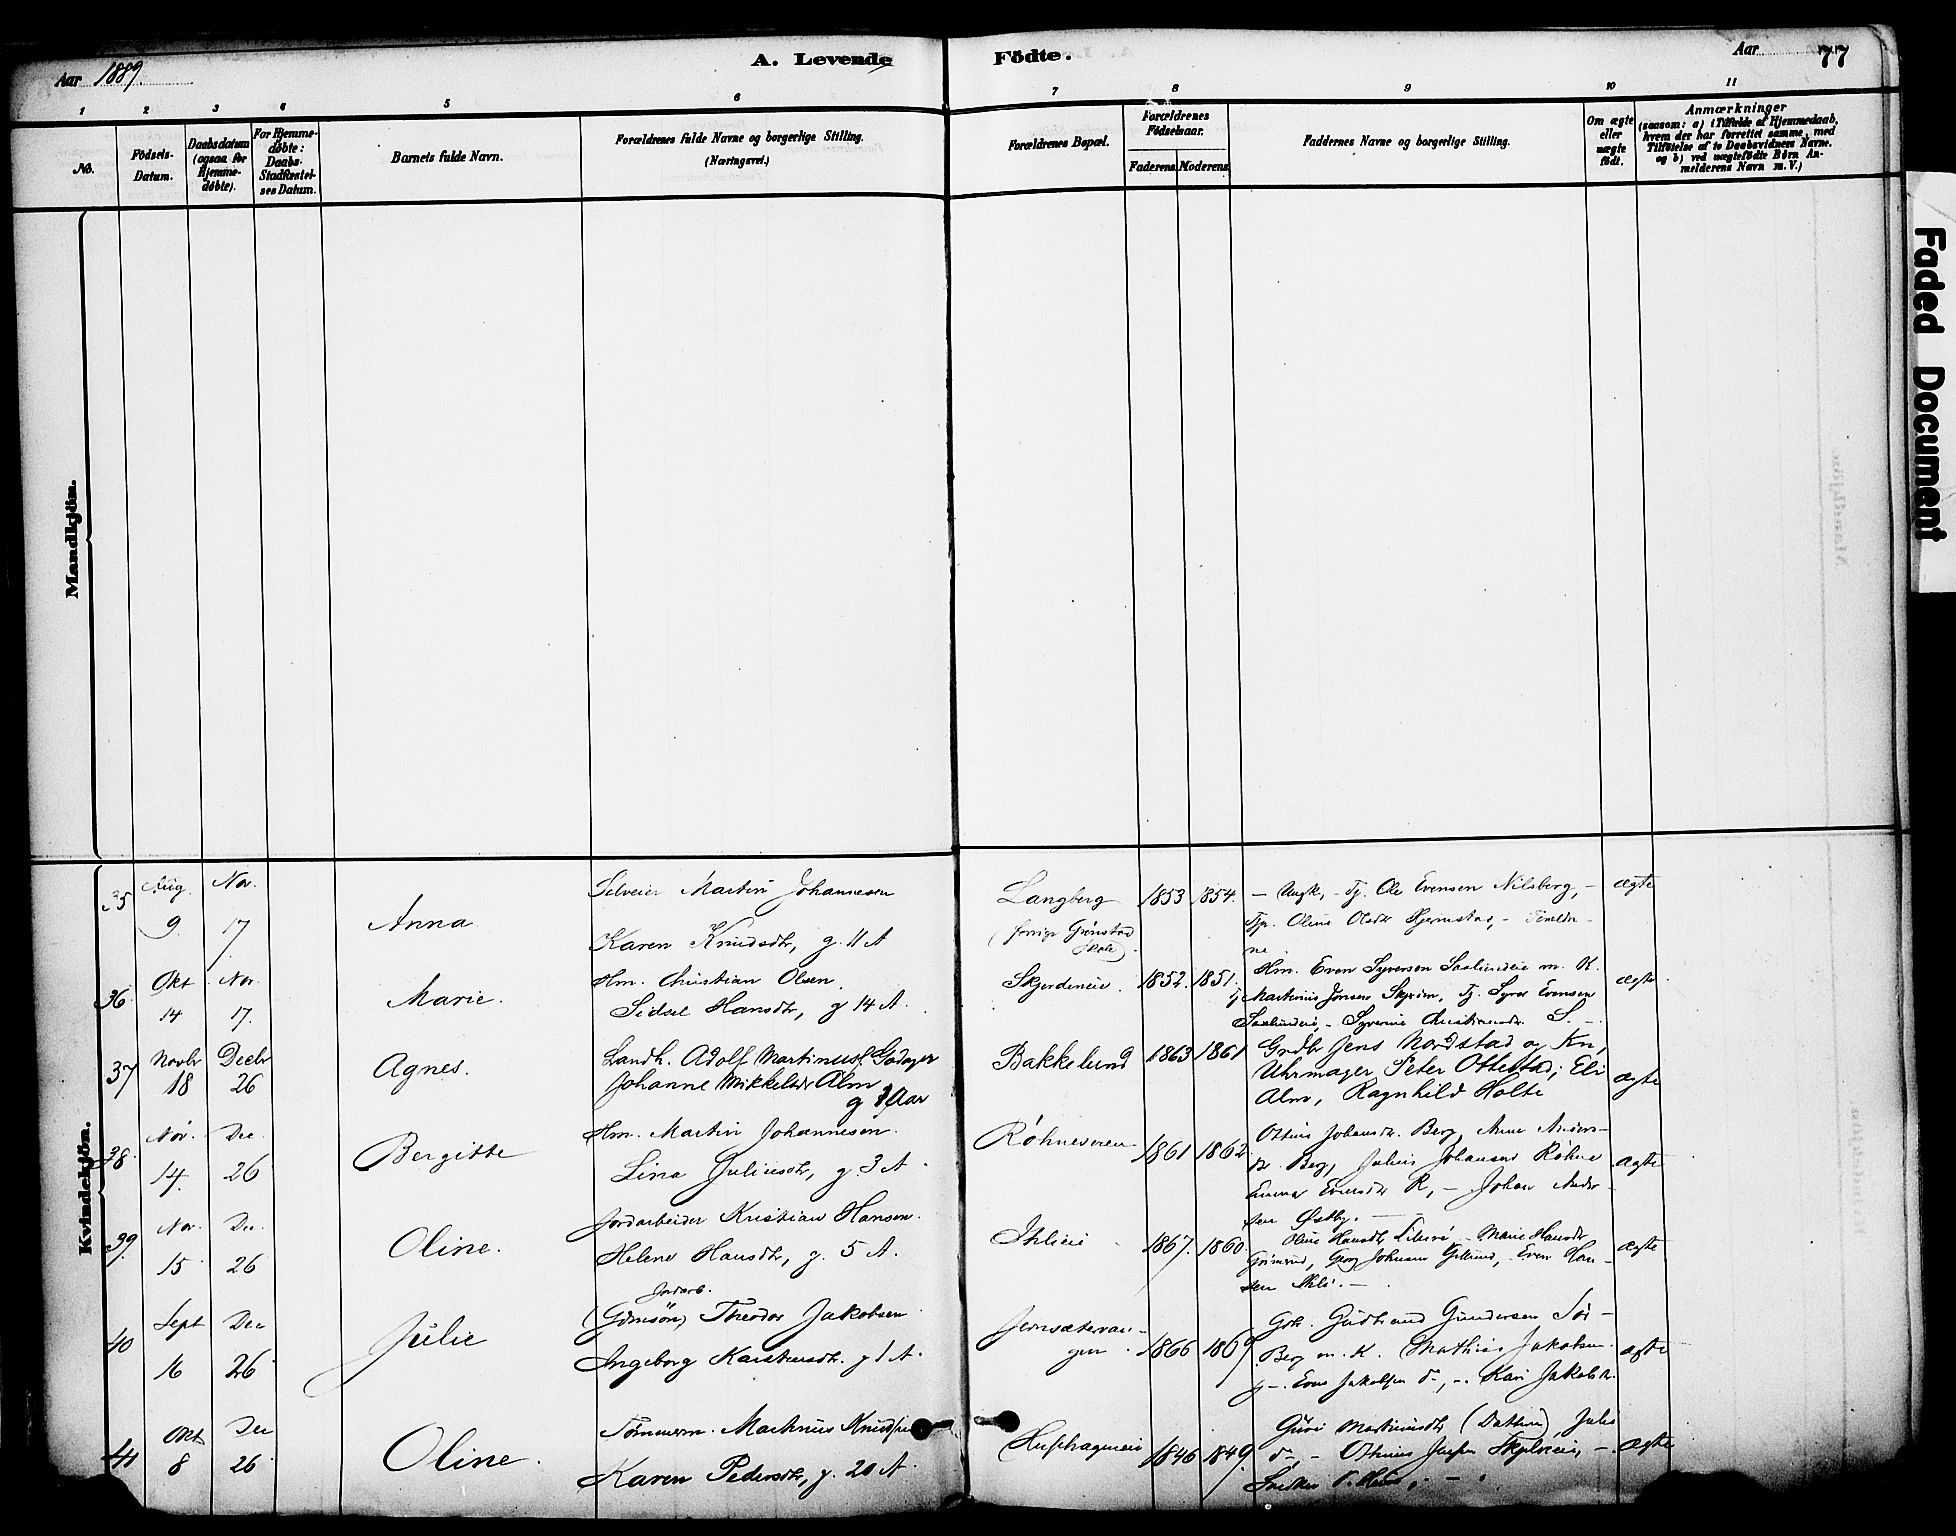 Aar 1889.
A. Levende Födte.
Aar 77
1 2 3 4 5 6 7 8 9 10 11
No.
Födsels-Datum.
Daabsdatum (ogsaa for Hjemme-döbte).
For Hjemme-döbte: Daabs-Stadfæstel-ses Datum.
Barnets fulde Navn.
Forældrenes fulde Navne og borgerlige Stilling.
(Næringsvei.)
Forældrenes Bopæl.
Forældrenes Födselsaar.
Faderens. Moderens.
Faddernes Navne og borgerlige Stilling.
Om ægte eller uægte födt.
Anmærkninger
(saasom: a) i Tilfælde af Hjemmedaab,
hvem der har forrettet samme, med
Tilföielse af to Daabsvidners Navne.
og b) ved uægtefödte Börn An-
melderens Navn m.V.)
Mandkjön.
Kvindekjön.
35 Aug. 9. Nov. 17 Anna
Selveier Martin Johannesen
Karen Knudsdtr, g. 11 A
Langberg
(forrige Grönstad Skole)
1853 1854.
Ungk. Tj. Ole Evensen Nilsberg, -
Tp. Oline Olsdtr Hjernstad, - Forældre-
ne
ægte
36 Okt 14 Nov. 17. Marie.
Hm. Christian Olsen
Sidsel Hansdtr, g 14 A.
Skjerdeneie 1852. 1851.
Hm. Even Syversen Saxlundeie m. K.
Martinius Jonsen Skjrim, Tj. Syver Evensen
Saxlundeie, - Syverine Christiansdtr. S. -
ægte
37 Novbr 18 Decbr 26 Agnes.
Landh. Adolf Martinus Gadager
Johanne Mikkelsdr Alm
g 1 Aar
Bakkelund 1863 1861
Grdbr Jens Nordstad og Kn,
Uhrmager Peter Ottestad, Eli
Alm, Ragnhild Holte
ægte
38. Nov. 14. Dec. 26 Bergitte
Hm. Martin Johannesen.
Lina Juliusdtr, g. 3 A.
Röhneseren 1861 1862
Otline Johansdr. Berg, Anne Anders-
dr. Berg, Julius Johansen Röhne
Emma Evensdtr R, - Johan Ander-
sen Östby. -
ægte
39. Nov. 15 Dec. 26 Oline.
Jordarbeider Kristian Hansen.
Helene Hansdtr, g. 5 A.
Ihleie 1867. 1860
Oline Hansdtr - Marie Hansdtr
Grimsrud, Georg Johnsen Gillund, - Even Han-
sen Ihle. -
ægte
40 Sept 16 Dec 26 Julie
Jordarb.
(Gdmsön) Theodor Jakobsen
Ingeborg Karstensdtr. g 1 A.
Jernsætervan-
gen
1866 1869
Gbr. Gudbrand Gundersen Sör-
Berg m. K. Mathias Jakobsen
Even Jakobsen do, -. Kari Jakobsdr.
ægte
41 Okt 8 Dec 26 Oline.
Tömmerm. Martinus Knudsen
Karen Pedersdtr, g. 20 A.
Huphagneie 1846 1849.
Guri Martinusdtr (Datteren), Julie
do, - Othinius Skjelveie, -
ægte
Faded Document